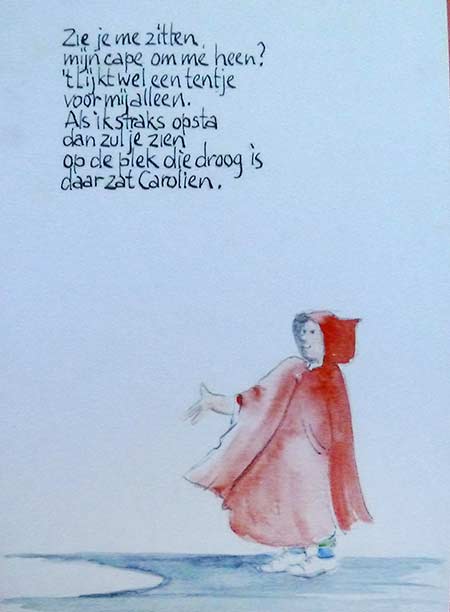 Zie je me zitten,
mijn cape om me heen?
't Lijkt wel een tentje
voor mij alleen.
Als ik straks opsta
dan zul je zien
op de plek die droog is
daar zat Carolien.